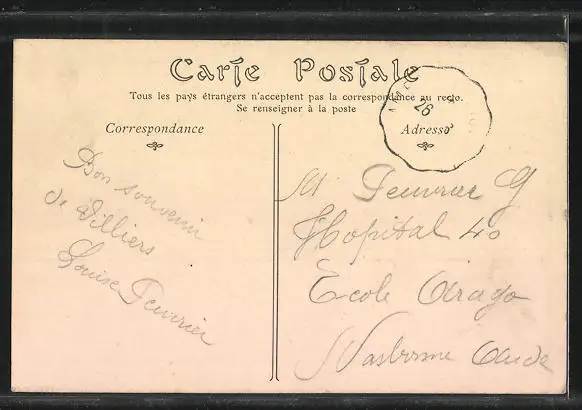 Carte Postale
Tous les pays étrangers n'acceptent pas la correspondance au recto.
Se renseigner à la poste
Correspondance
Adresse
26
Bon souvenir
de Villiers
Louise Feuvrier
M Feuvrier G
Hopital 40
Ecole Arago
Narbonne Aude